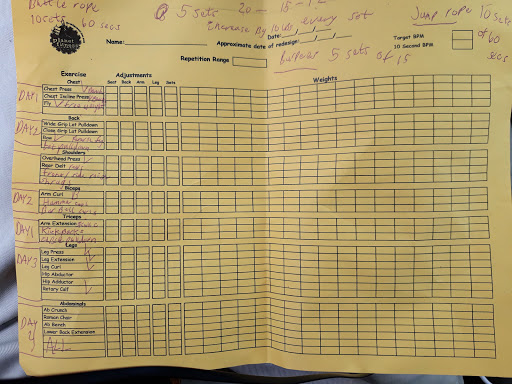 Battle rope
10 sets 60 secs
5 sets 20 - 15 - 12
Increase by 10 lbs every set
Jump rope 10 sets
of 60
secs
planet fitness
Name:
Date:
Approximate date of redesign:
Target BPM
10 Second BPM
Repetition Range
burpees 5 sets of 15
Exercise Adjustments Weights
Chest Seat Back Arm Leg Sets
DAY 1
Chest Press
Chest Incline Press
Fly
Back
DAY 2
Wide Grip Lat Pulldown
Close Grip Lat Pulldown
Row
Shoulders
Overhead Press
Rear Delt
Shrugs
Biceps
DAY 2
Arm Curl
Hammer
Triceps
DAY 1
Arm Extension
Kickbacks
Legs
DAY 3
Leg Press
Leg Extension
Leg Curl
Hip Abductor
Hip Adductor
Rotary Calf
Abdominals
DAY
Ab Crunch
Roman Chair
Ab Bench
Lower Back Extension
ALL